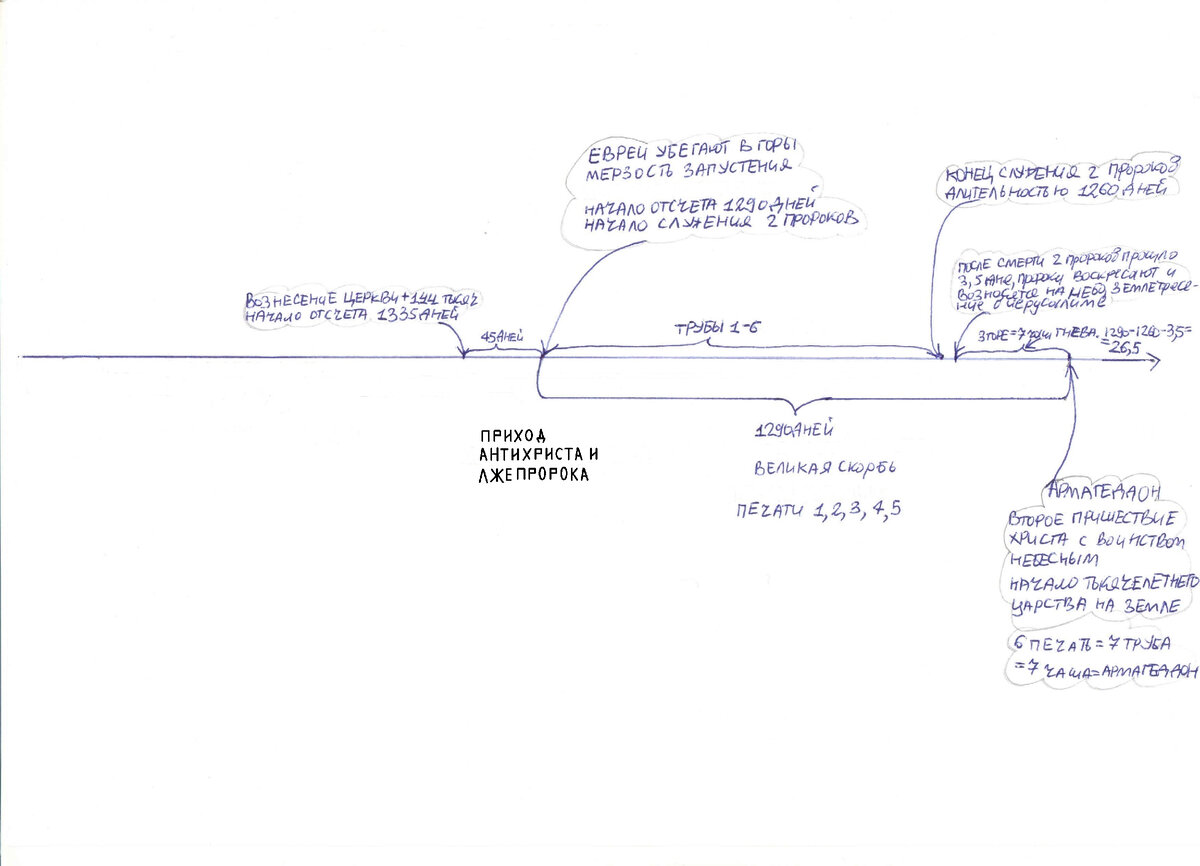 ЕВРЕИ УБЕГАЮТ В ГОРЫ
МЕРЗОСТЬ ЗАПУСТЕНИЯ
НАЧАЛО ОТСЧЕТА 1290 ДНЕЙ
НАЧАЛО СЛУЖЕНИЯ 2 ПРОРОКОВ
КОНЕЦ СЛУЖЕНИЯ 2 ПРОРОКОВ
ДЛИТЕЛЬНОСТЬЮ 1260 ДНЕЙ
ПОСЛЕ СМЕРТИ 2 ПРОРОКОВ ПРОШЛО
3,5 ДНЯ, ПРОРОКИ ВОСКРЕСАЮТ И
ВОЗНОСЯТСЯ НА НЕБО, ЗЕМЛЕТРЕСЕ-
НИЕ В ИЕРУСАЛИМЕ
ВОЗНЕСЕНИЕ ЦЕРКВИ + 144 ТЫСЯЧ
НАЧАЛО ОТСЧЕТА 1335 ДНЕЙ
45 ДНЕЙ
ТРУБЫ 1-6
3 ГОРЕ = 7 ЧАШ ГНЕВА. 1290-1260-3,5=
= 26,5
ПРИХОД
АНТИХРИСТА И
ЛЖЕПРОРОКА
1290 ДНЕЙ
ВЕЛИКАЯ СКОРБЬ
ПЕЧАТИ 1, 2, 3, 4, 5
АРМАГЕДДОН
ВТОРОЕ ПРИШЕСТВИЕ
ХРИСТА С ВОИНСТВОМ
НЕБЕСНЫМ
НАЧАЛО ТЫСЯЧЕЛЕТНЕГО
ЦАРСТВА НА ЗЕМЛЕ
6 ПЕЧАТЬ = 7 ТРУБА
= 7 ЧАША = АРМАГЕДДОН